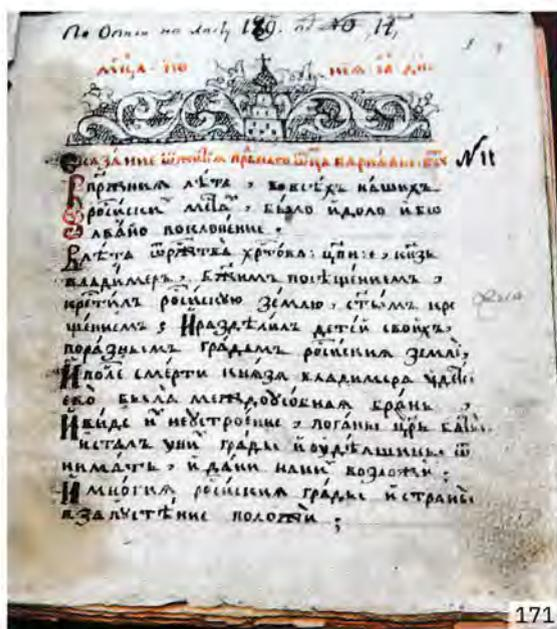 По Описи на листу 189. по № 11,
Сказанїе ѿ житїѧ прпⷣбнаго ѿца варнавы № 11
Въ прежния лѣта, во всѣхъ нашихъ
росїиски мѣста, было идоло
поклонение,
Влѣта ѿ ржⷭтва хрⷭтова: кнѧзь
владимеръ, бж҃їимъ посѣщениемъ,
крⷭтилъ росїискую землю, ст҃ымъ кре
щениемъ; И раздѣлилъ детей своихъ,
по разнымъ градамъ росїиския земли,
И поⷭле смерти кнѧзѧ владимера и дѣтей
ево была междоусобная брань,
И виде и неустроение, поганы цр҃ь баты
и сталъ у ни грады и оудѣлщины ѿ
нимать, и дани на ни возложи;
И многия росїиския грады и страны
в запустѣние положи;
171